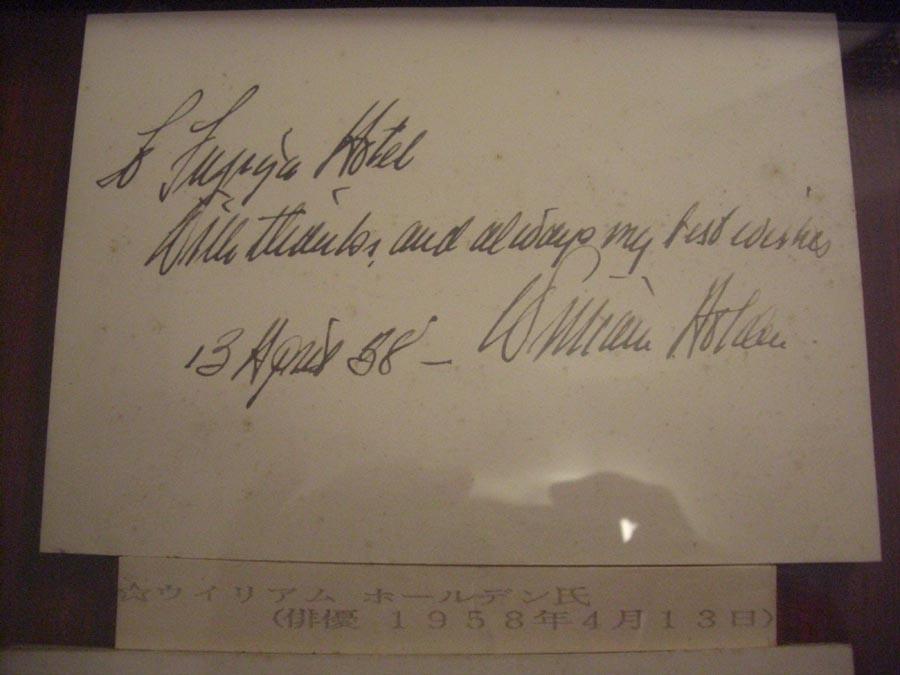 To Fujiya Hotel
With thanks, and always my best wishes
13 April 58 – William Holden
☆ウイリアム ホールデン氏
(俳優 1958年4月13日)